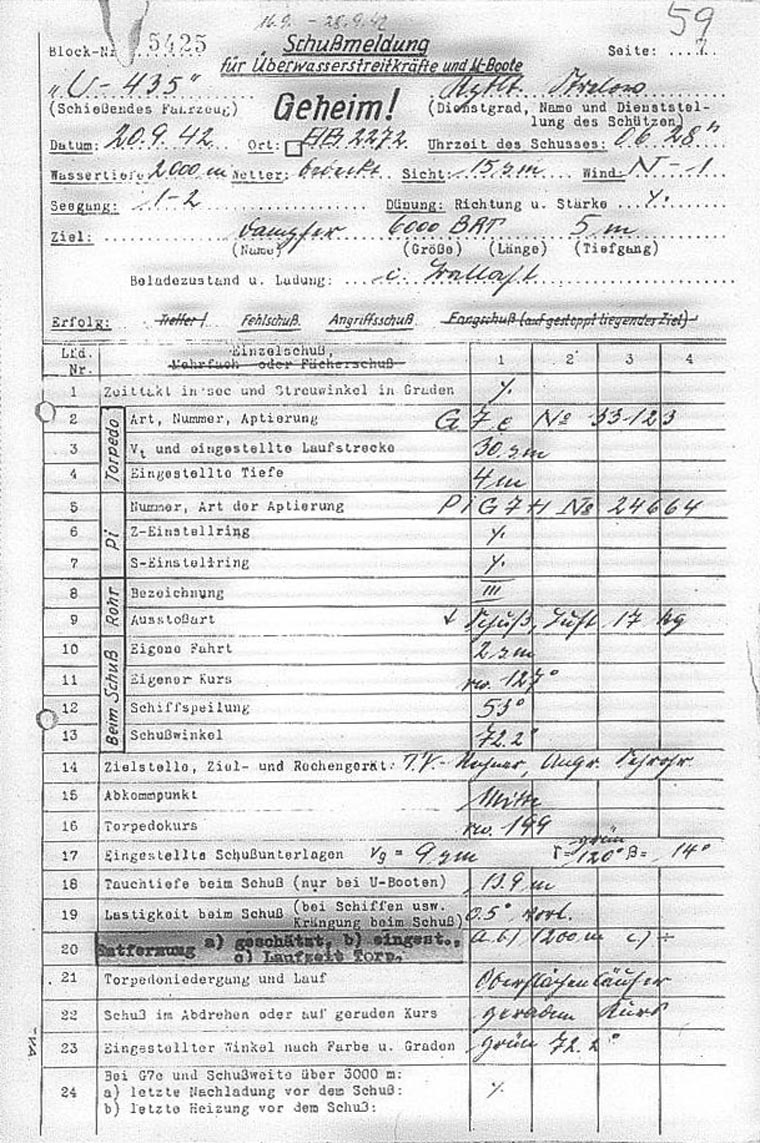 16.9. - 28.9.42
59
Block-Nr. 5425
Schußmeldung
für Überwasserstreitkräfte und U-Boote
Seite: ...7
"U - 435"
Kptlt. Strelow
(Schießendes Fahrzeug)
Geheim!
(Dienstgrad, Name und Dienststel-
lung des Schützen)
Datum: 20.9.42 Ort: □ AB 2272. Uhrzeit des Schusses: 0628"
Wassertiefe 2000 m Wetter: bedeckt Sicht: 15 sm Wind: N - 1
Seegang: 1-2 Dünung: Richtung u. Stärke ... ./.
Ziel: Dampfer 6000 BRT 5 m
(Name) (Größe) (Länge) (Tiefgang)
Beladezustand u. Ladung: i. Ballast
Erfolg: Treffer! Fehlschuß. Angriffsschuß. Fangschuß (auf gestoppt liegender Ziel)
Lfd. Nr. Einzelschuß, Mehrfach- oder Fächerschuß 1 2 3 4
1 Zeittakt in sec und Streuwinkel in Graden ./.
Torpedo
2 Art, Nummer, Aptierung G 7e No 33123
3 Vt und eingestellte Laufstrecke 30 sm
4 Eingestellte Tiefe 4 m
Pi
5 Nummer, Art der Aptierung Pi G 7 H No 24664
6 Z-Einstellring ./.
7 S-Einstellring ./.
Rohr
8 Bezeichnung III
9 Ausstoßart ↓ Schuß, Luft 17 kg
Beim Schuß
10 Eigene Fahrt 2 sm
11 Eigener Kurs rw. 127°
12 Schiffspeilung 53°
13 Schußwinkel 72.2°
14 Zielstelle, Ziel- und Rechengerät: T.V.- Rechner, Angr. Sehrohr.
15 Abkommpunkt Mitte
16 Torpedokurs rw. 199
17 Eingestellte Schußunterlagen Vg = 9 sm γ= grün 120° β= 14°
18 Tauchtiefe beim Schuß (nur bei U-Booten) 13.9 m
19 Lastigkeit beim Schuß (bei Schiffen usw. Krängung beim Schuß) 0.5° vorl.
20 Entfernung a) geschätzt, b) eingest., c) Laufzeit Torp. a. b) 1200 m c) ÷
21 Torpedoniedergang und Lauf Oberflächenläufer
22 Schuß im Abdrehen oder auf geraden Kurs geraden Kurs
23 Eingestellter Winkel nach Farbe u. Graden grün 72.2°
24 Bei G7e und Schußweite über 3000 m:
a) letzte Nachladung vor dem Schuß: ./.
b) letzte Heizung vor dem Schuß: